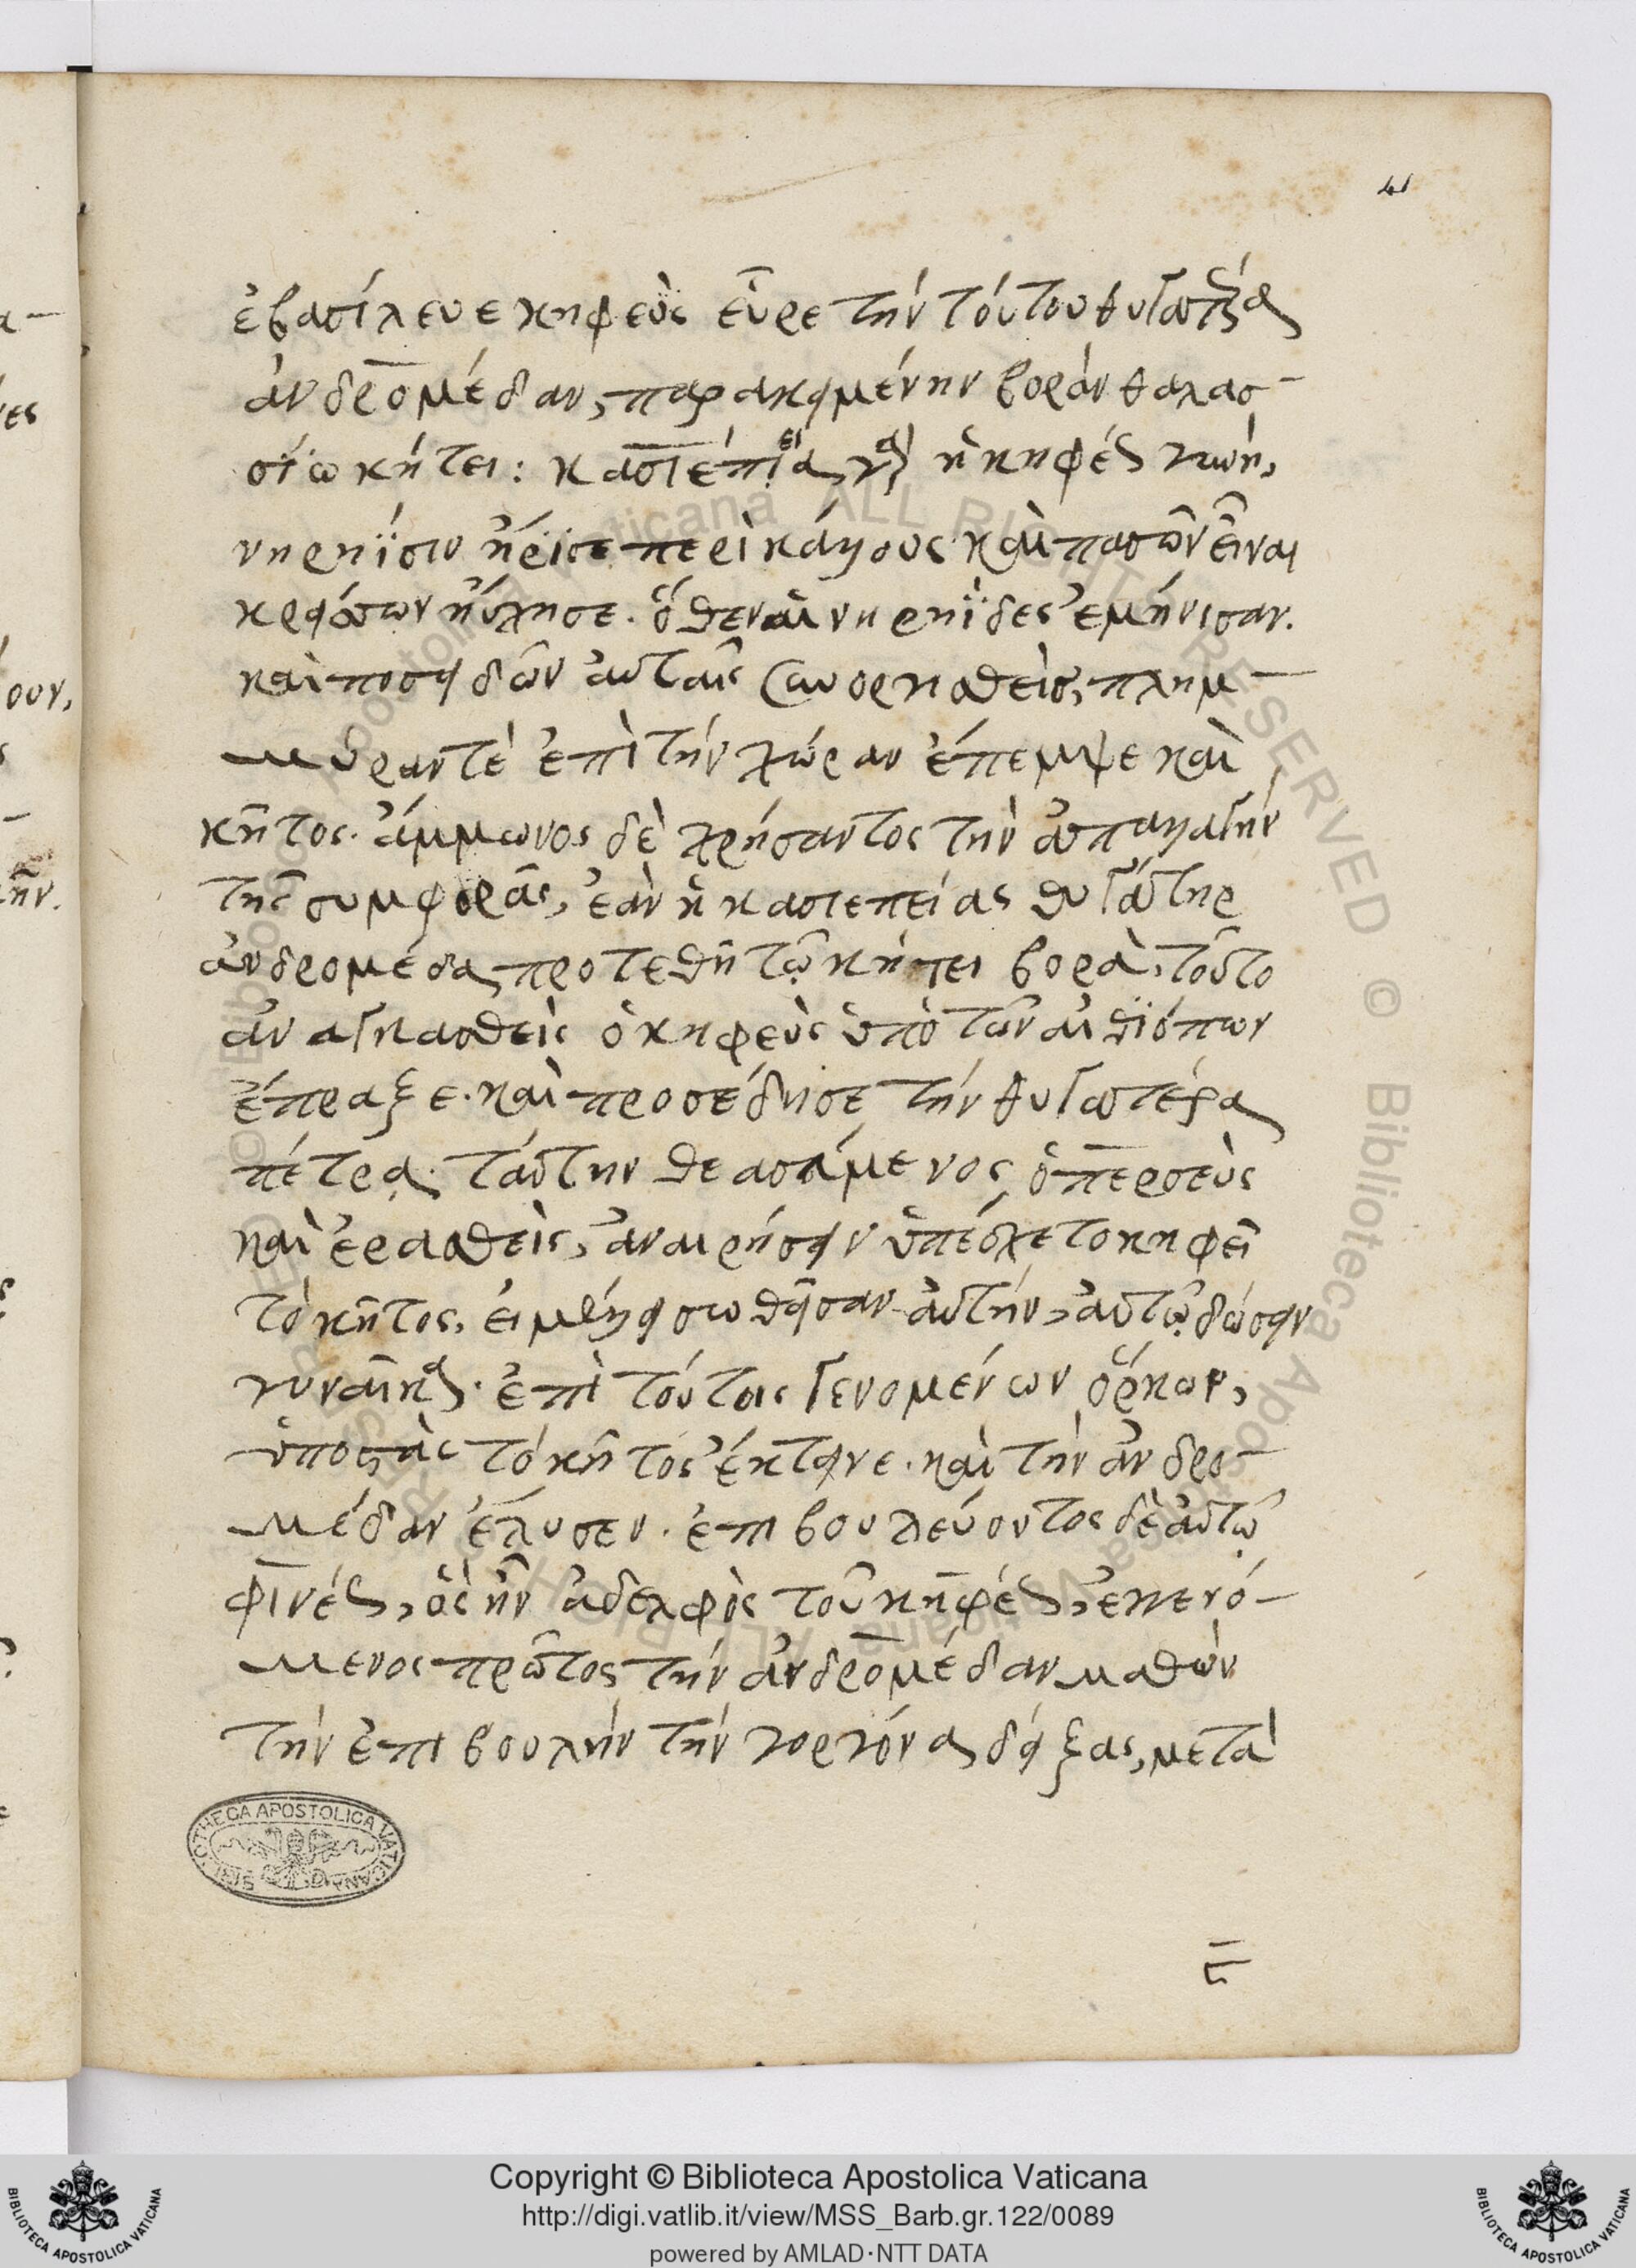 41
ἐβασίλευε κηφεὺς εὗρε τὴν τούτου θυγατέρα
ἀνδρομέδαν, παρακειμένην βορὰν θαλασ-
σίω κήτει: κασιέπεια γὰρ ἡ κηφέως γυνὴ,
νηρηΐσιν ἤρισε περὶ κάλλους καὶ πασῶν εἶναι
κρείσσων ηὔχησε. ὅθεν αἱ νηρηΐδες ἐμήνισαν.
καὶ ποσειδῶν αὐταῖς συνοργισθεὶς, πλημ-
μύραν τὲ ἐπὶ τὴν χώραν ἔπεμψε καὶ
κῆτος. ἄμμωνος δὲ χρήσαντος τὴν ἀπαλλαγὴν
τῆς συμφορᾶς, ἐὰν ἡ κασιεπείας θυγάτηρ
ἀνδρομέδα προτεθῆ τῷ κήτει βορὰ, τοῦτο
ἀναγκασθεὶς ὁ κηφεὺς ὑπὸ τῶν αἰθιόπων
ἔπραξε. καὶ προσέδησε τὴν θυγατέρα
πέτρᾳ. ταύτην θεασάμενος ὁ περσεὺς
καὶ ἐρασθεὶς, ἀναιρήσειν ὑπέσχετο κηφεῖ
τὸ κῆτος, εἰ μέλλει σωθεῖσαν αὐτὴν, αὐτῷ δώσειν
γυναῖκα. ἐπὶ τούτοις γενομένων ὅρκων,
ὑποστὰς τὸ κῆτος ἔκτεινε. καὶ τὴν ἀνδρο-
μέδαν ἔλυσεν. ἐπιβουλεύοντος δὲ αὐτῷ
φινέως, ὃς ἦν ἀδελφὸς τοῦ κηφέως, ἐγγενό-
μενος πρῶτος τὴν ἀνδρομέδαν μαθὼν
τὴν ἐπιβουλὴν τὴν γοργόνα δείξας, μετὰ
BIBLIOTHECA APOSTOLICA VATICANA
Copyright © Biblioteca Apostolica Vaticana
http://digi.vatlib.it/view/MSS_Barb.gr.122/0089
powered by AMLAD·NTT DATA